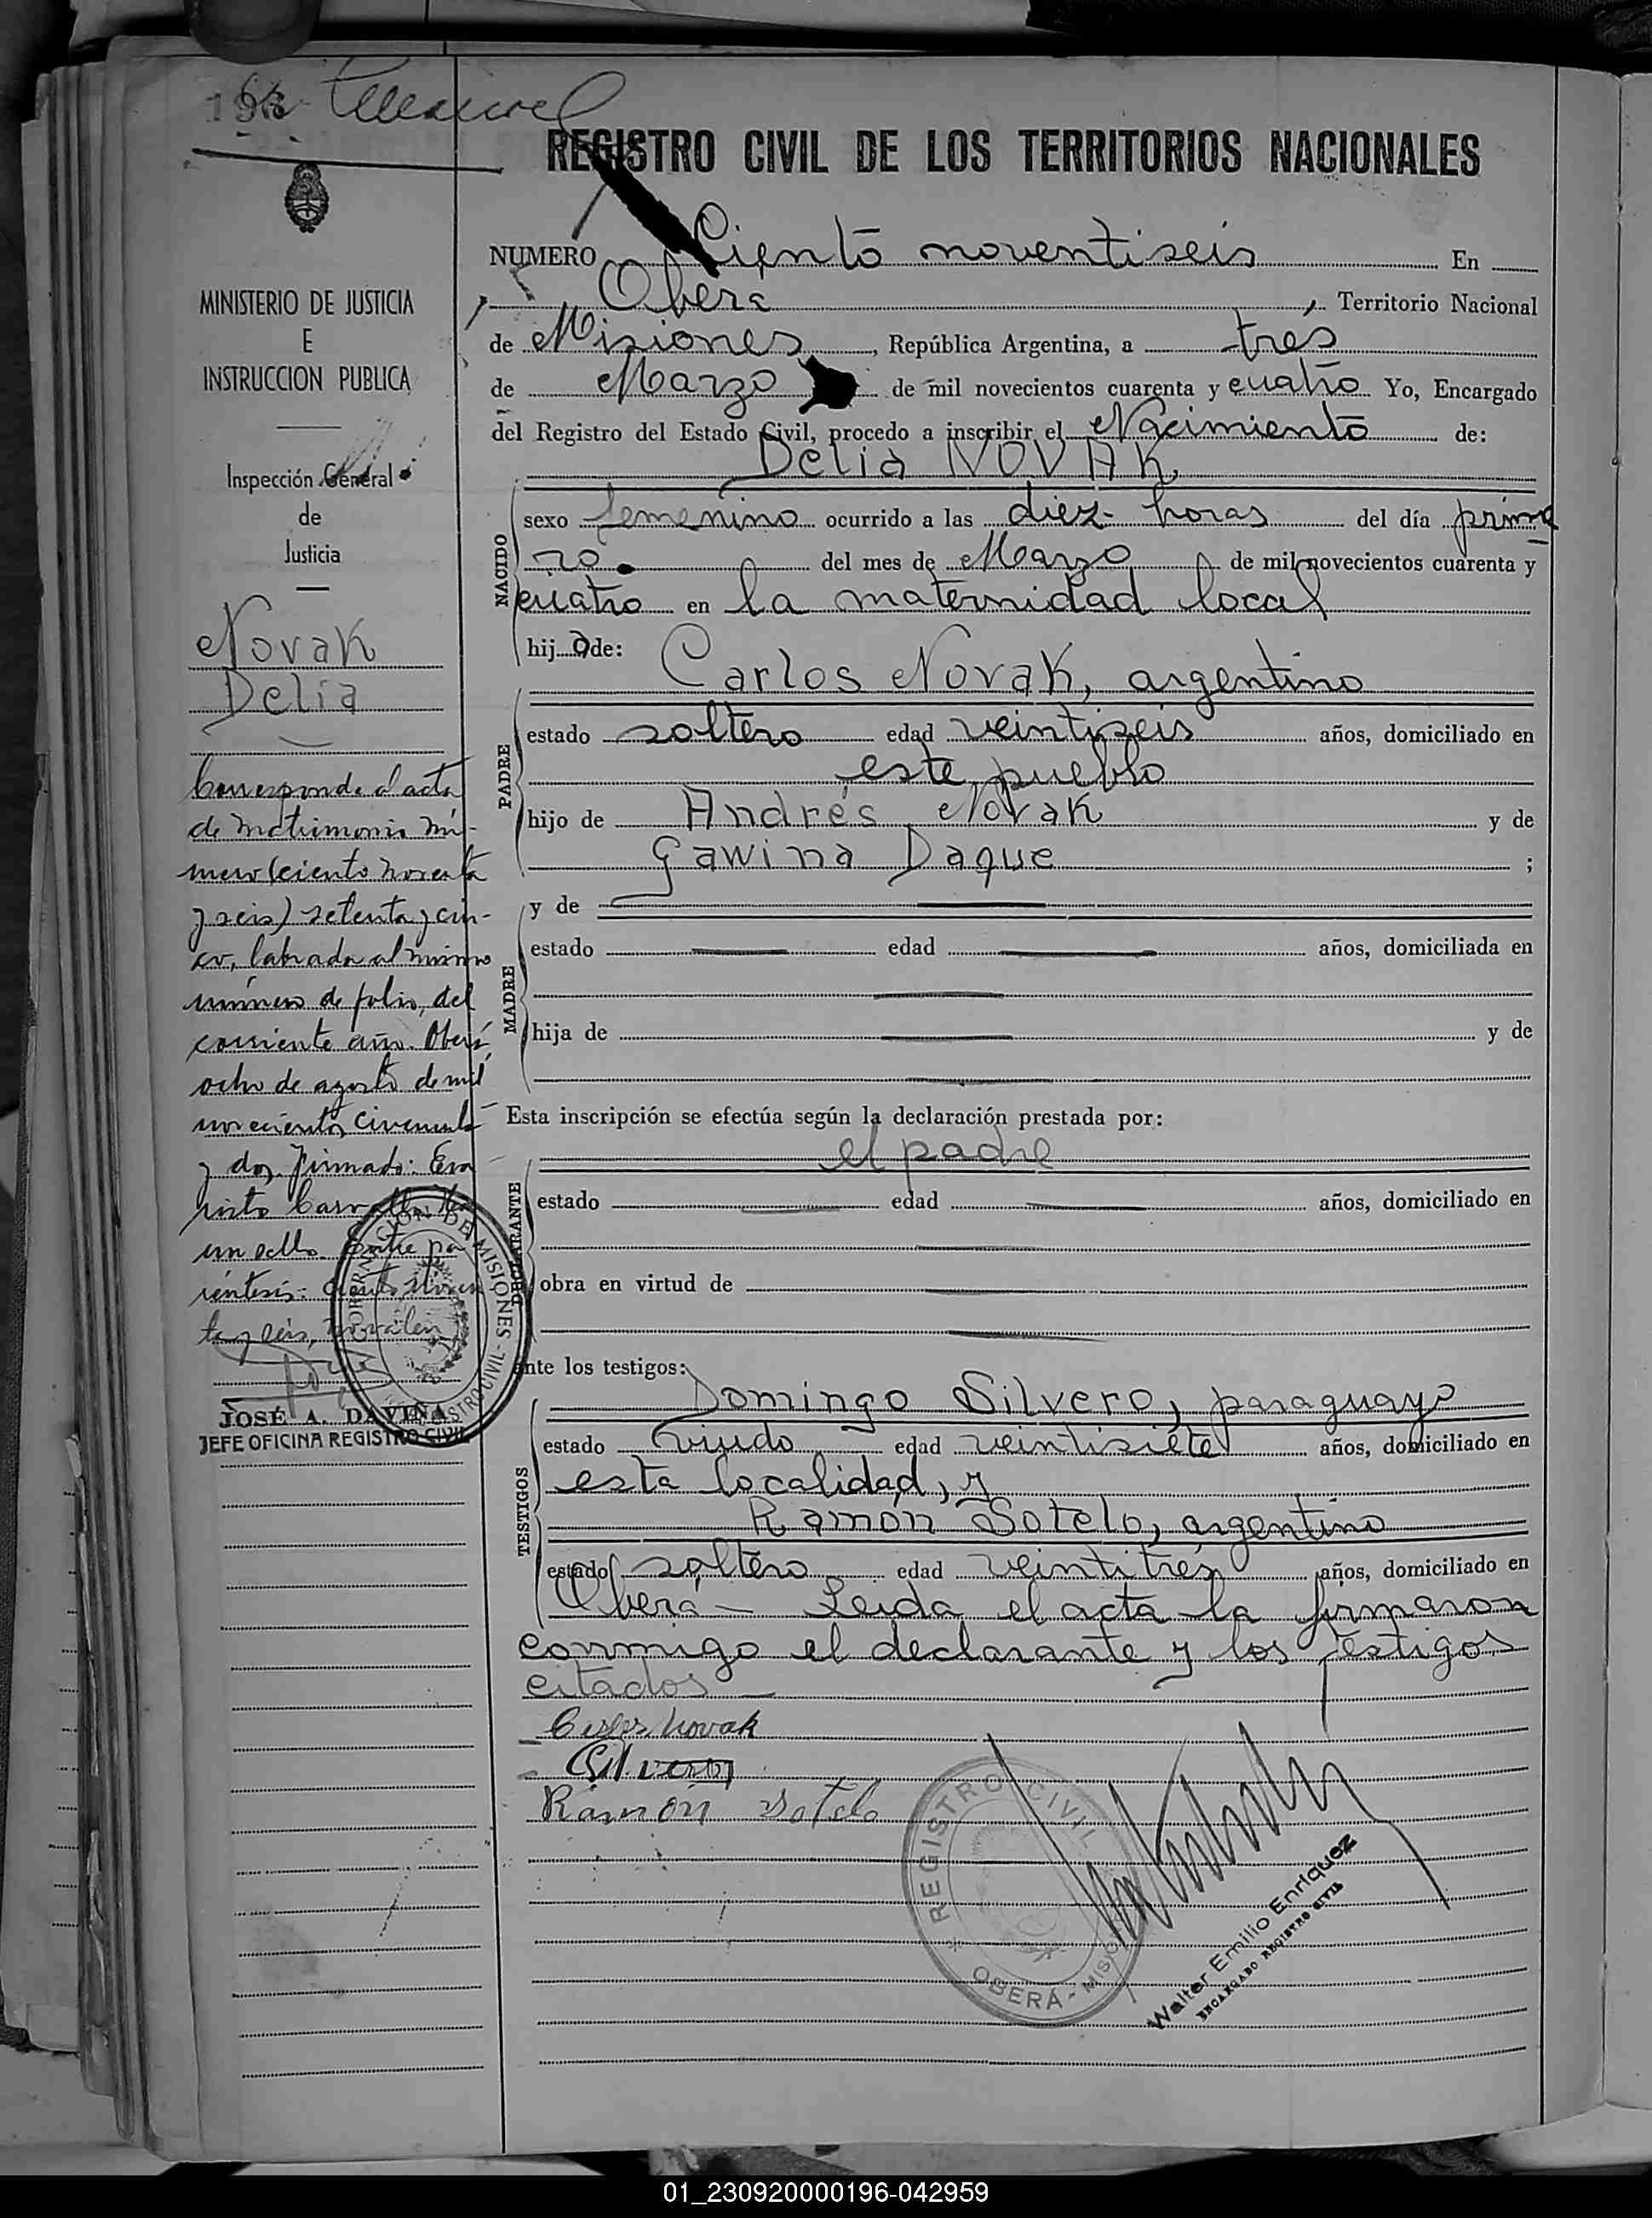 REGISTRO CIVIL DE LOS TERRITORIOS NACIONALES
MINISTERIO DE JUSTICIA
E
INSTRUCCION PUBLICA
Inspección General
de
Justicia
Novak
Delia
Corresponde al acta
de matrimonio nú-
mero (ciento noventa
y seis) setenta y cin-
co, labrada al mismo
número de folio, del
corriente año. Oberá
ocho de agosto de mil
novecientos cincuenta
y dos. Firmado: Eva
risto Carvallo. Hay
un sello. Entre pa
réntesis: ciento noven
ta y seis, no valen
JOSÉ A. DAVIÑA
JEFE OFICINA REGISTRO CIVIL
GOBERNACION DE MISIONES - REGISTRO CIVIL
NUMERO Ciento noventiseis En
Oberá, Territorio Nacional
de Misiones, República Argentina, a tres
de Marzo de mil novecientos cuarenta y cuatro Yo, Encargado
del Registro del Estado Civil, procedo a inscribir el Nacimiento de:
Delia NOVAK,
NACIDO
sexo femenino ocurrido a las diez horas del día prime
ro del mes de Marzo de mil novecientos cuarenta y
cuatro en la maternidad local
hij a de:
PADRE
Carlos Novak, argentino
estado soltero edad veintiseis años, domiciliado en
este pueblo
hijo de Andrés Novak y de
Gawina Daque ;
MADRE
y de
estado edad años, domiciliada en
hija de y de
Esta inscripción se efectúa según la declaración prestada por:
el padre
DECLARANTE
estado edad años, domiciliado en
obra en virtud de
ante los testigos:
TESTIGOS
Domingo Silvero, paraguayo
estado viudo edad veintisiete años, domiciliado en
esta localidad, y
Ramón Sotelo, argentino
estado soltero edad veintitrés años, domiciliado en
Oberá - Leida el acta la firmaron
conmigo el declarante y los testigos
citados -
Carlos Novak
Silvero
Ramón Sotelo
REGISTRO CIVIL
OBERÁ - MISIONES
Walter Emilio Enriquez
ENCARGADO REGISTRO CIVIL
01_230920000196-042959